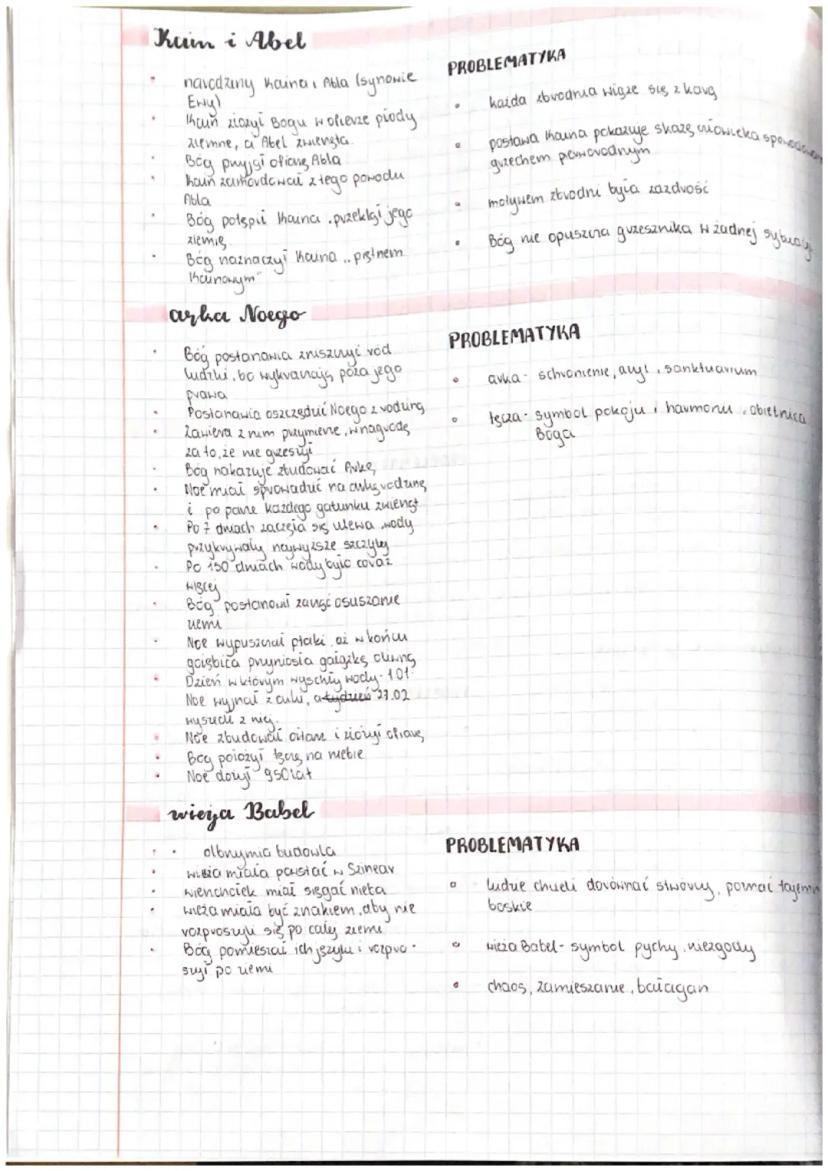 Kain i Abel
narodziny Kaina i Abla (synowie
Ewy)
Kain złożył Bogu w ofierze płody
ziemne, a Abel zwierzęta.
Bóg przyjął ofiarę Abla
Kain zamordował z tego powodu
Abla
Bóg potępił Kaina, przeklął jego
ziemię
Bóg naznaczył Kaina „piętnem
Kainowym"
PROBLEMATYKA
każda zbrodnia wiąże się z karą
postawa Kaina pokazuje skazę człowieka
grzechem pierworodnym
motywem zbrodni była zazdrość
Bóg nie opuszcza grzesznika w żadnej
arka Noego
Bóg postanawia zniszczyć ród
ludzki, bo wykraczają poza jego
prawa
Postanawia oszczędzić Noego z rodziną
Zawiera z nim przymierze, w nagrodę
za to, że nie grzeszył
Bóg nakazuje zbudować Arkę
Noe miał sprowadzić na arkę rodzinę
i po parze każdego gatunku zwierząt
Po 7 dniach zaczęła się ulewa, wody
przykrywały najwyższe szczyty
Po 150 dniach wody było coraz
więcej
Bóg postanowił zacząć osuszanie
ziemi
Noe wypuszczał ptaki, aż w końcu
gołębica przyniosła gałązkę oliwną
Dzień w którym wyschły wody - 1.01
Noe wyjrzał z arki, a tydzień 27.02
wyszedł z niej.
Noe zbudował ołtarz i złożył ofiarę
Bóg położył tęczę na niebie
Noe dożył 950 lat
PROBLEMATYKA
arka - schronienie, azyl, sanktuarium
tęcza - symbol pokoju i harmonii, obietnica
Boga
wieża Babel
olbrzymia budowla
wieża miała powstać w Szinear
wierzchołek miał sięgać nieba
wieża miała być znakiem, aby nie
rozproszyli się po całej ziemi
Bóg pomieszał ich języki i rozpro-
szył po ziemi
PROBLEMATYKA
ludzie chcieli dorównać stwórcy, poznać
boskie
wieża Babel - symbol pychy, niezgody
chaos, zamieszanie, bałagan